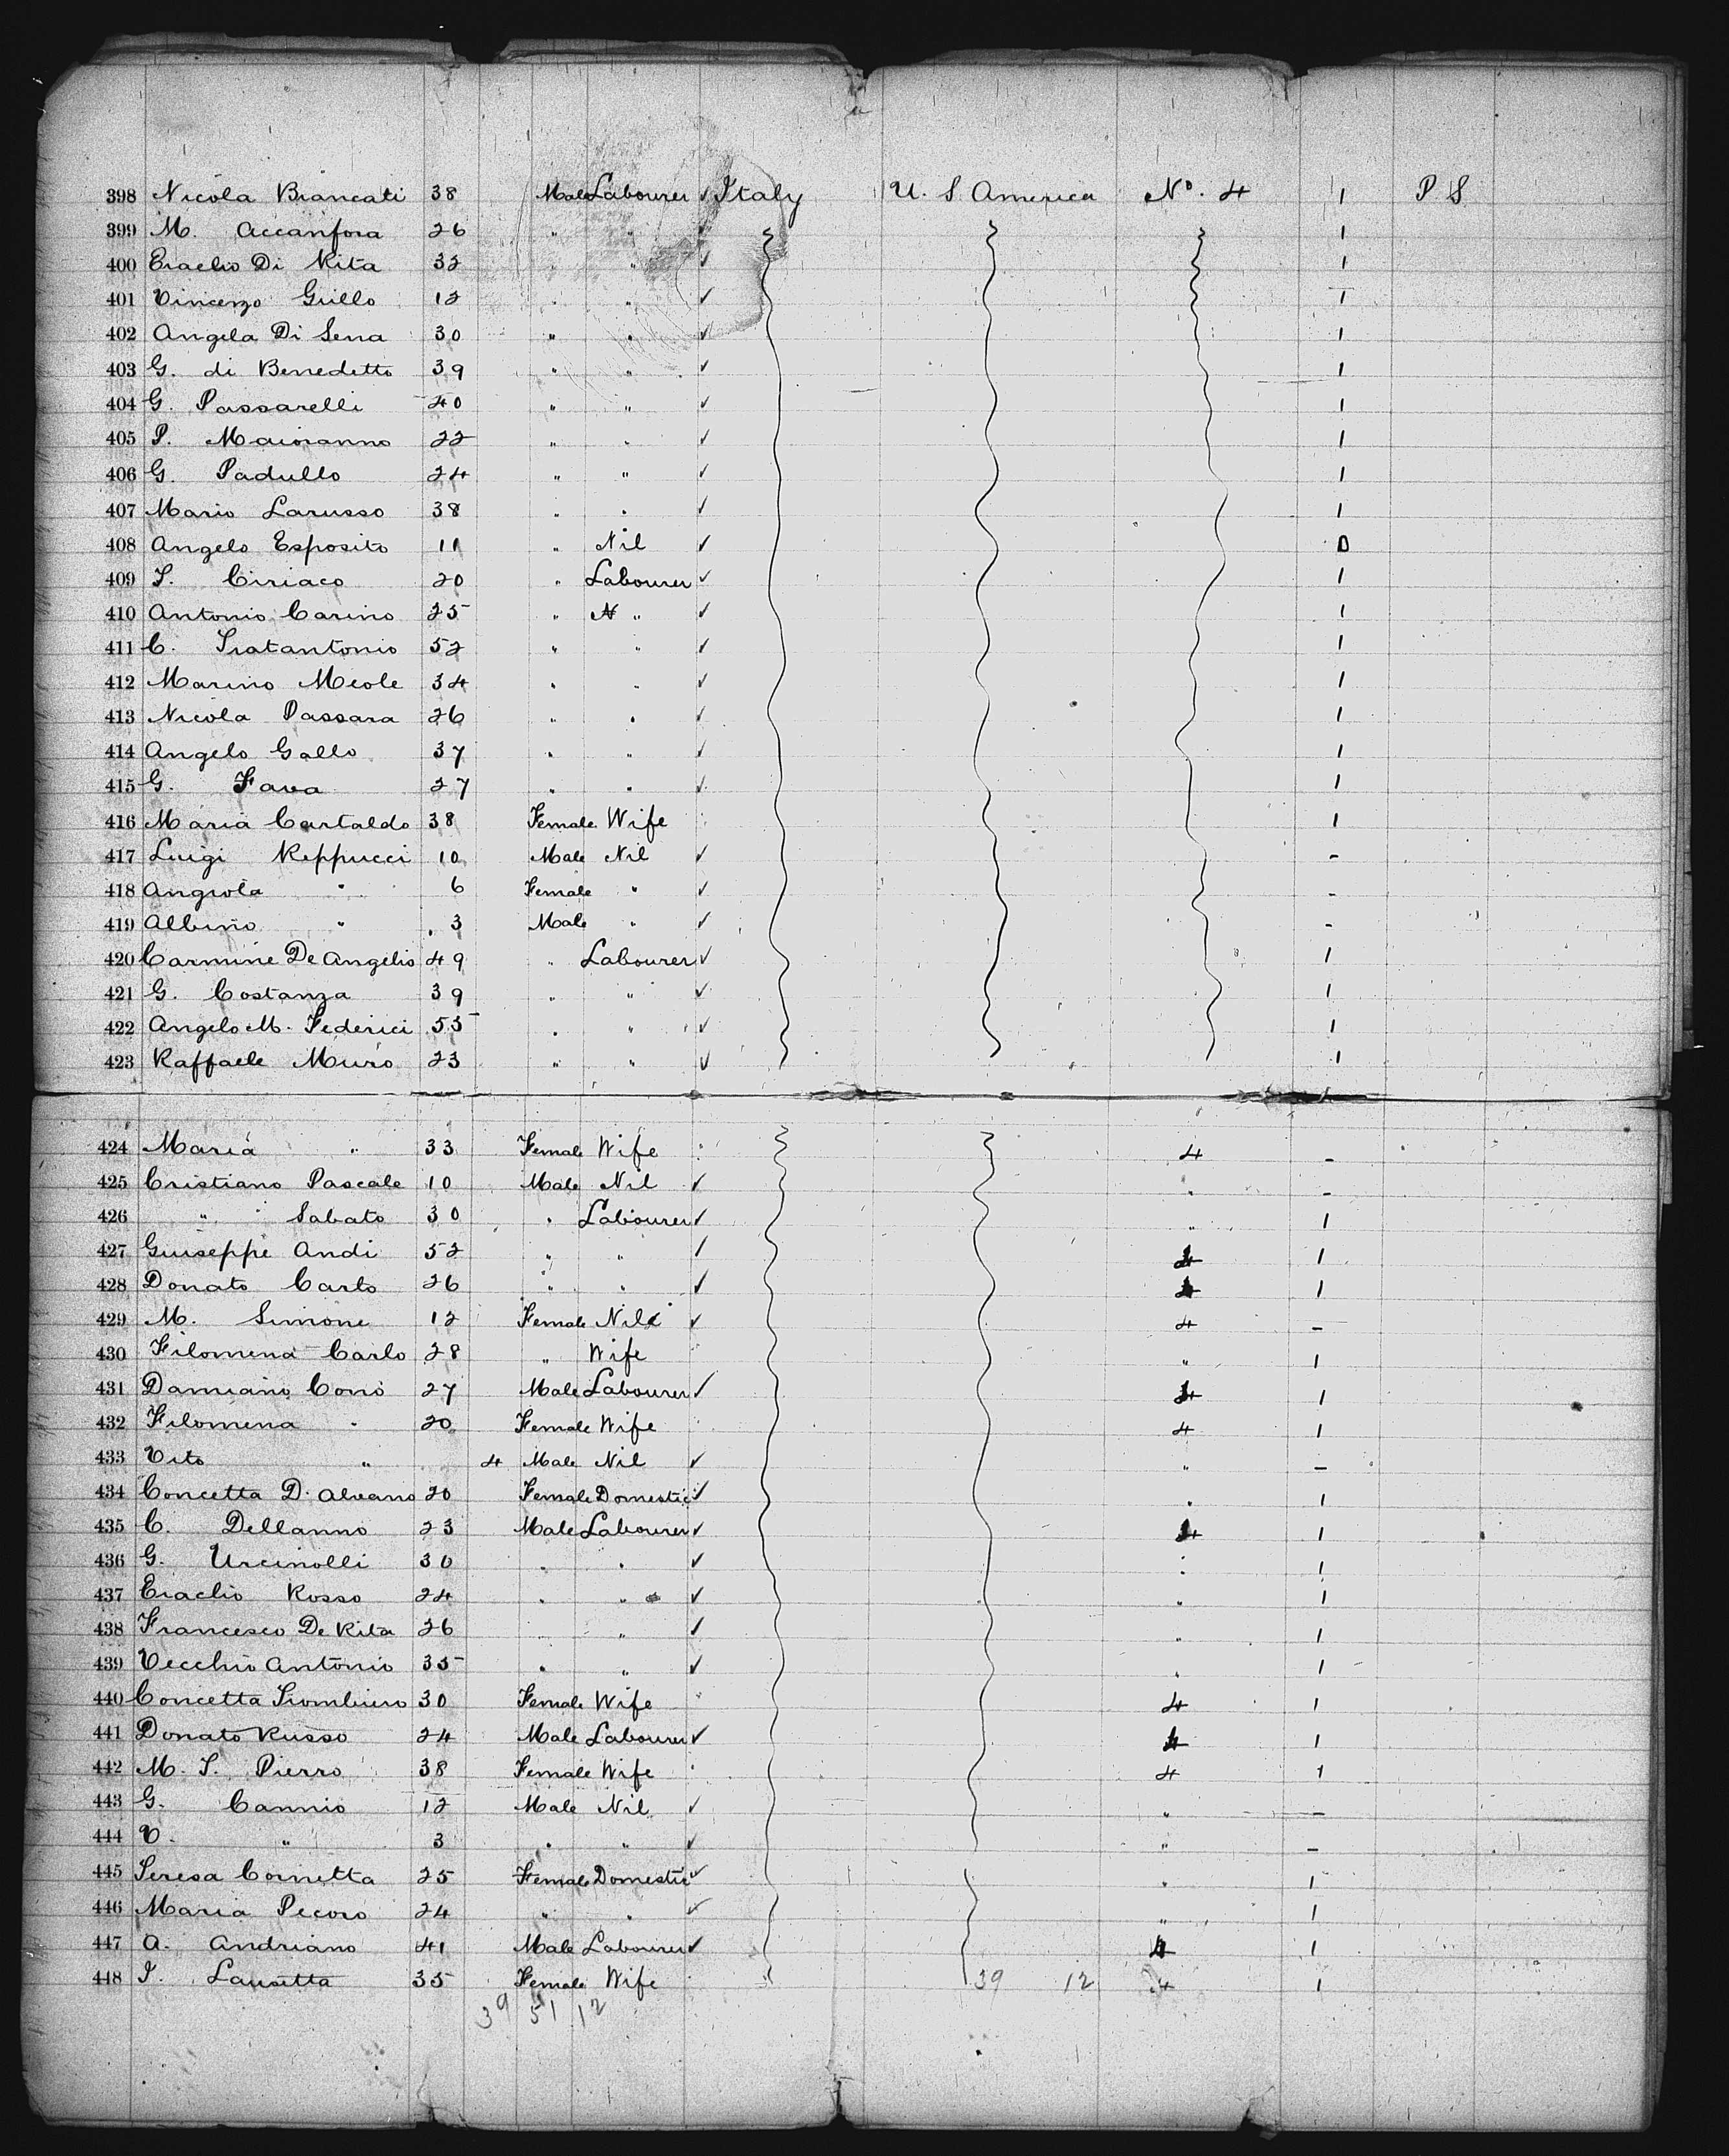 398 Nicola Brancati 38 Male Labourer ✓ Italy U. S. America No. 4 1 P S
399 M. Accanfora 26 " " 1
400 Eraclio Di Rita 32 " " ✓ 1
401 Vincenzo Grillo 12 " " ✓ 1
402 Angela Di Sena 30 " " ✓ 1
403 G. di Benedetto 39 " " ✓ 1
404 G. Passarelli 40 " " ✓ 1
405 P. Maioranno 22 " " ✓ 1
406 G. Padullo 24 " " ✓ 1
407 Mario Larusso 38 " " ✓ 1
408 Angelo Esposito 11 " Nil ✓ 0
409 S. Ciriaco 20 " Labourer ✓ 1
410 Antonio Carino 25 " N " ✓ 1
411 C. Tratantonio 52 " " ✓ 1
412 Marino Meole 34 " " ✓ 1
413 Nicola Passara 26 " " ✓ 1
414 Angelo Gallo 37 " " ✓ 1
415 G. Fava 27 " " ✓ 1
416 Maria Cartaldo 38 Female Wife 1
417 Luigi Reppucci 10 Male Nil ✓ -
418 Angiola " 6 Female " ✓ -
419 Albino " 3 Male " ✓ -
420 Carmine De Angelis 49 " Labourer ✓ 1
421 G. Costanza 39 " " ✓ 1
422 Angelo M. Federici 55 " " ✓ 1
423 Raffaele Muro 23 " " ✓ 1
424 Maria " 33 Female Wife 4 -
425 Cristiano Pascale 10 Male Nil ✓ " -
426 " Sabato 30 " Labourer ✓ " 1
427 Giuseppe Andi 52 " " ✓ 4 1
428 Donato Carlo 26 " " ✓ 4 1
429 M. Simone 12 Female Nil ✓ 4 -
430 Filomena Carlo 28 " Wife " 1
431 Damiano Cono 27 Male Labourer ✓ 4 1
432 Filomena " 20 Female Wife 4 1
433 Vito " 4 Male Nil ✓ " -
434 Concetta D. Alvano 20 Female Domestic ✓ " 1
435 C. Dellanno 23 Male Labourer ✓ 4 1
436 G. Urcinolli 30 " " ✓ " 1
437 Eraclio Rosso 24 " " ✓ " 1
438 Francesco De Rita 26 " ✓ " 1
439 Vecchio Antonio 35 " " ✓ " 1
440 Concetta 30 Female Wife 4 1
441 Donato Russo 24 Male Labourer ✓ 4 1
442 M. S. Pierro 38 Female Wife 4 1
443 G. Cannio 12 Male Nil ✓ " -
444 V. " 3 " " ✓ " -
445 Teresa Cornetta 25 Female Domestic ✓ " 1
446 Maria Pecoro 24 " " ✓ " 1
447 A. Andriano 41 Male Labourer ✓ 4 1
448 Lausetta 35 Female Wife " 39 12 4 1
39 51 12